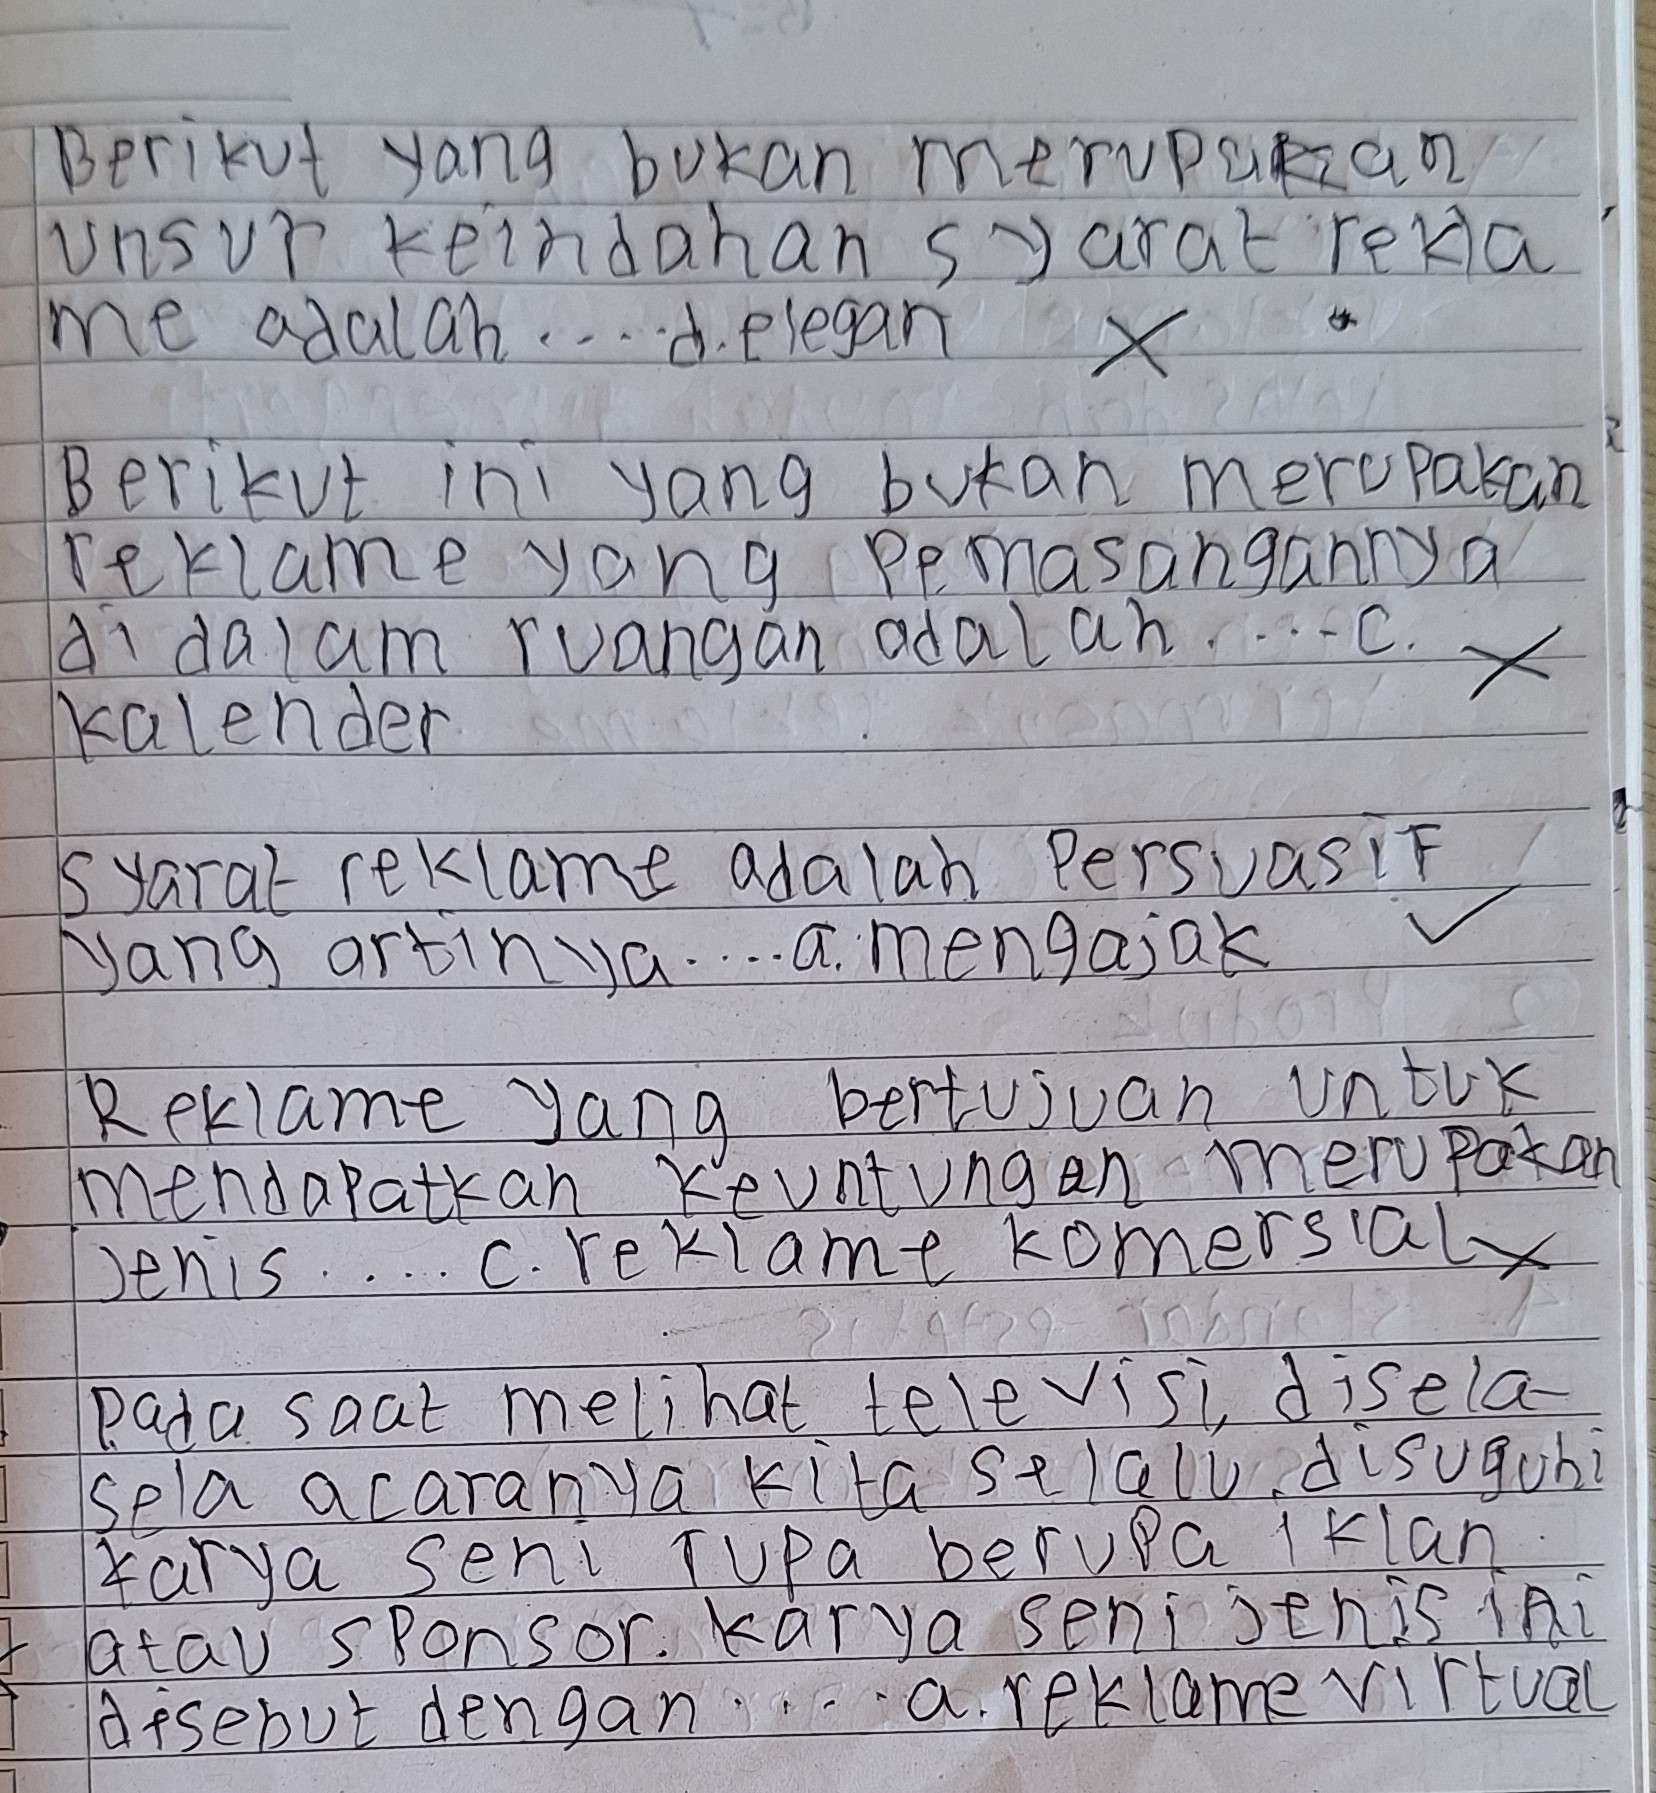 Berikut yang bukan merupakan
unsur keindahan syarat rekla
me adalah.....d.elegan X
Berikut ini yang bukan merupakan
reklame yang pemasangannya
di dalam ruangan adalah.....c. X
kalender
syarat reklame adalah persuasif
yang artinya.....a.mengajak ✓
Reklame yang bertujuan untuk
mendapatkan keuntungan merupakan
jenis.....c.reklame komersial X
pada saat melihat televisi, disela-
sela acaranya kita selalu disuguhi
karya seni rupa berupa iklan
atau sponsor. karya seni jenis ini
disebut dengan.....a.reklame virtual